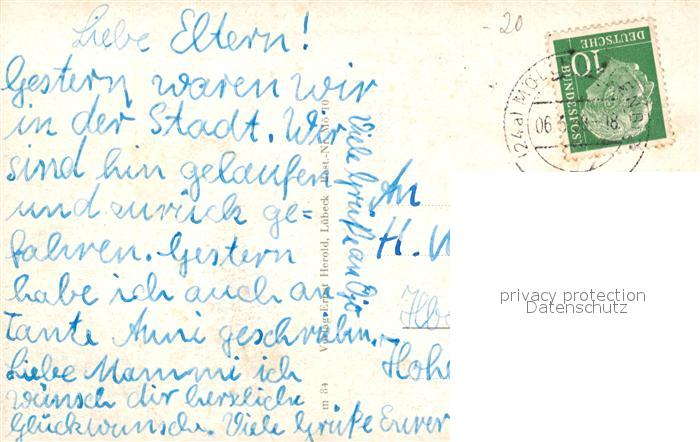 Liebe Eltern!
Gestern waren wir
in der Stadt. Wir
sind hin gelaufen
und zurück ge=
fahren. Gestern
habe ich auch an
Tante Anni geschriben.
Liebe Mammi ich
wünsch dir herzlich
Glückwunsch. Viele Grüße Euer
Viele Grüße an
m 84 Verlag Ernst Herold, Lübeck Best.-Nr.
-20
DEUTSCHE
BUNDESPOST
10
(24a) MÖLLN
06. 18
An
H.
Hohe
privacy protection
Datenschutz